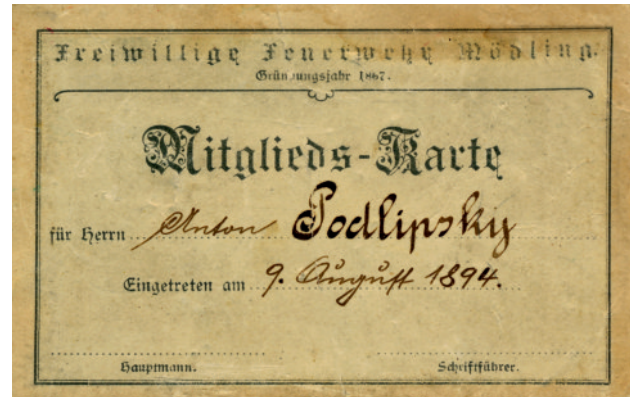 Freiwillige Feuerwehr Mödling.
Gründungsjahr 1867.
Mitglieds-Karte
für Herrn Anton Podlipsky
Eingetreten am 9. August 1894.
Hauptmann. Schriftführer.